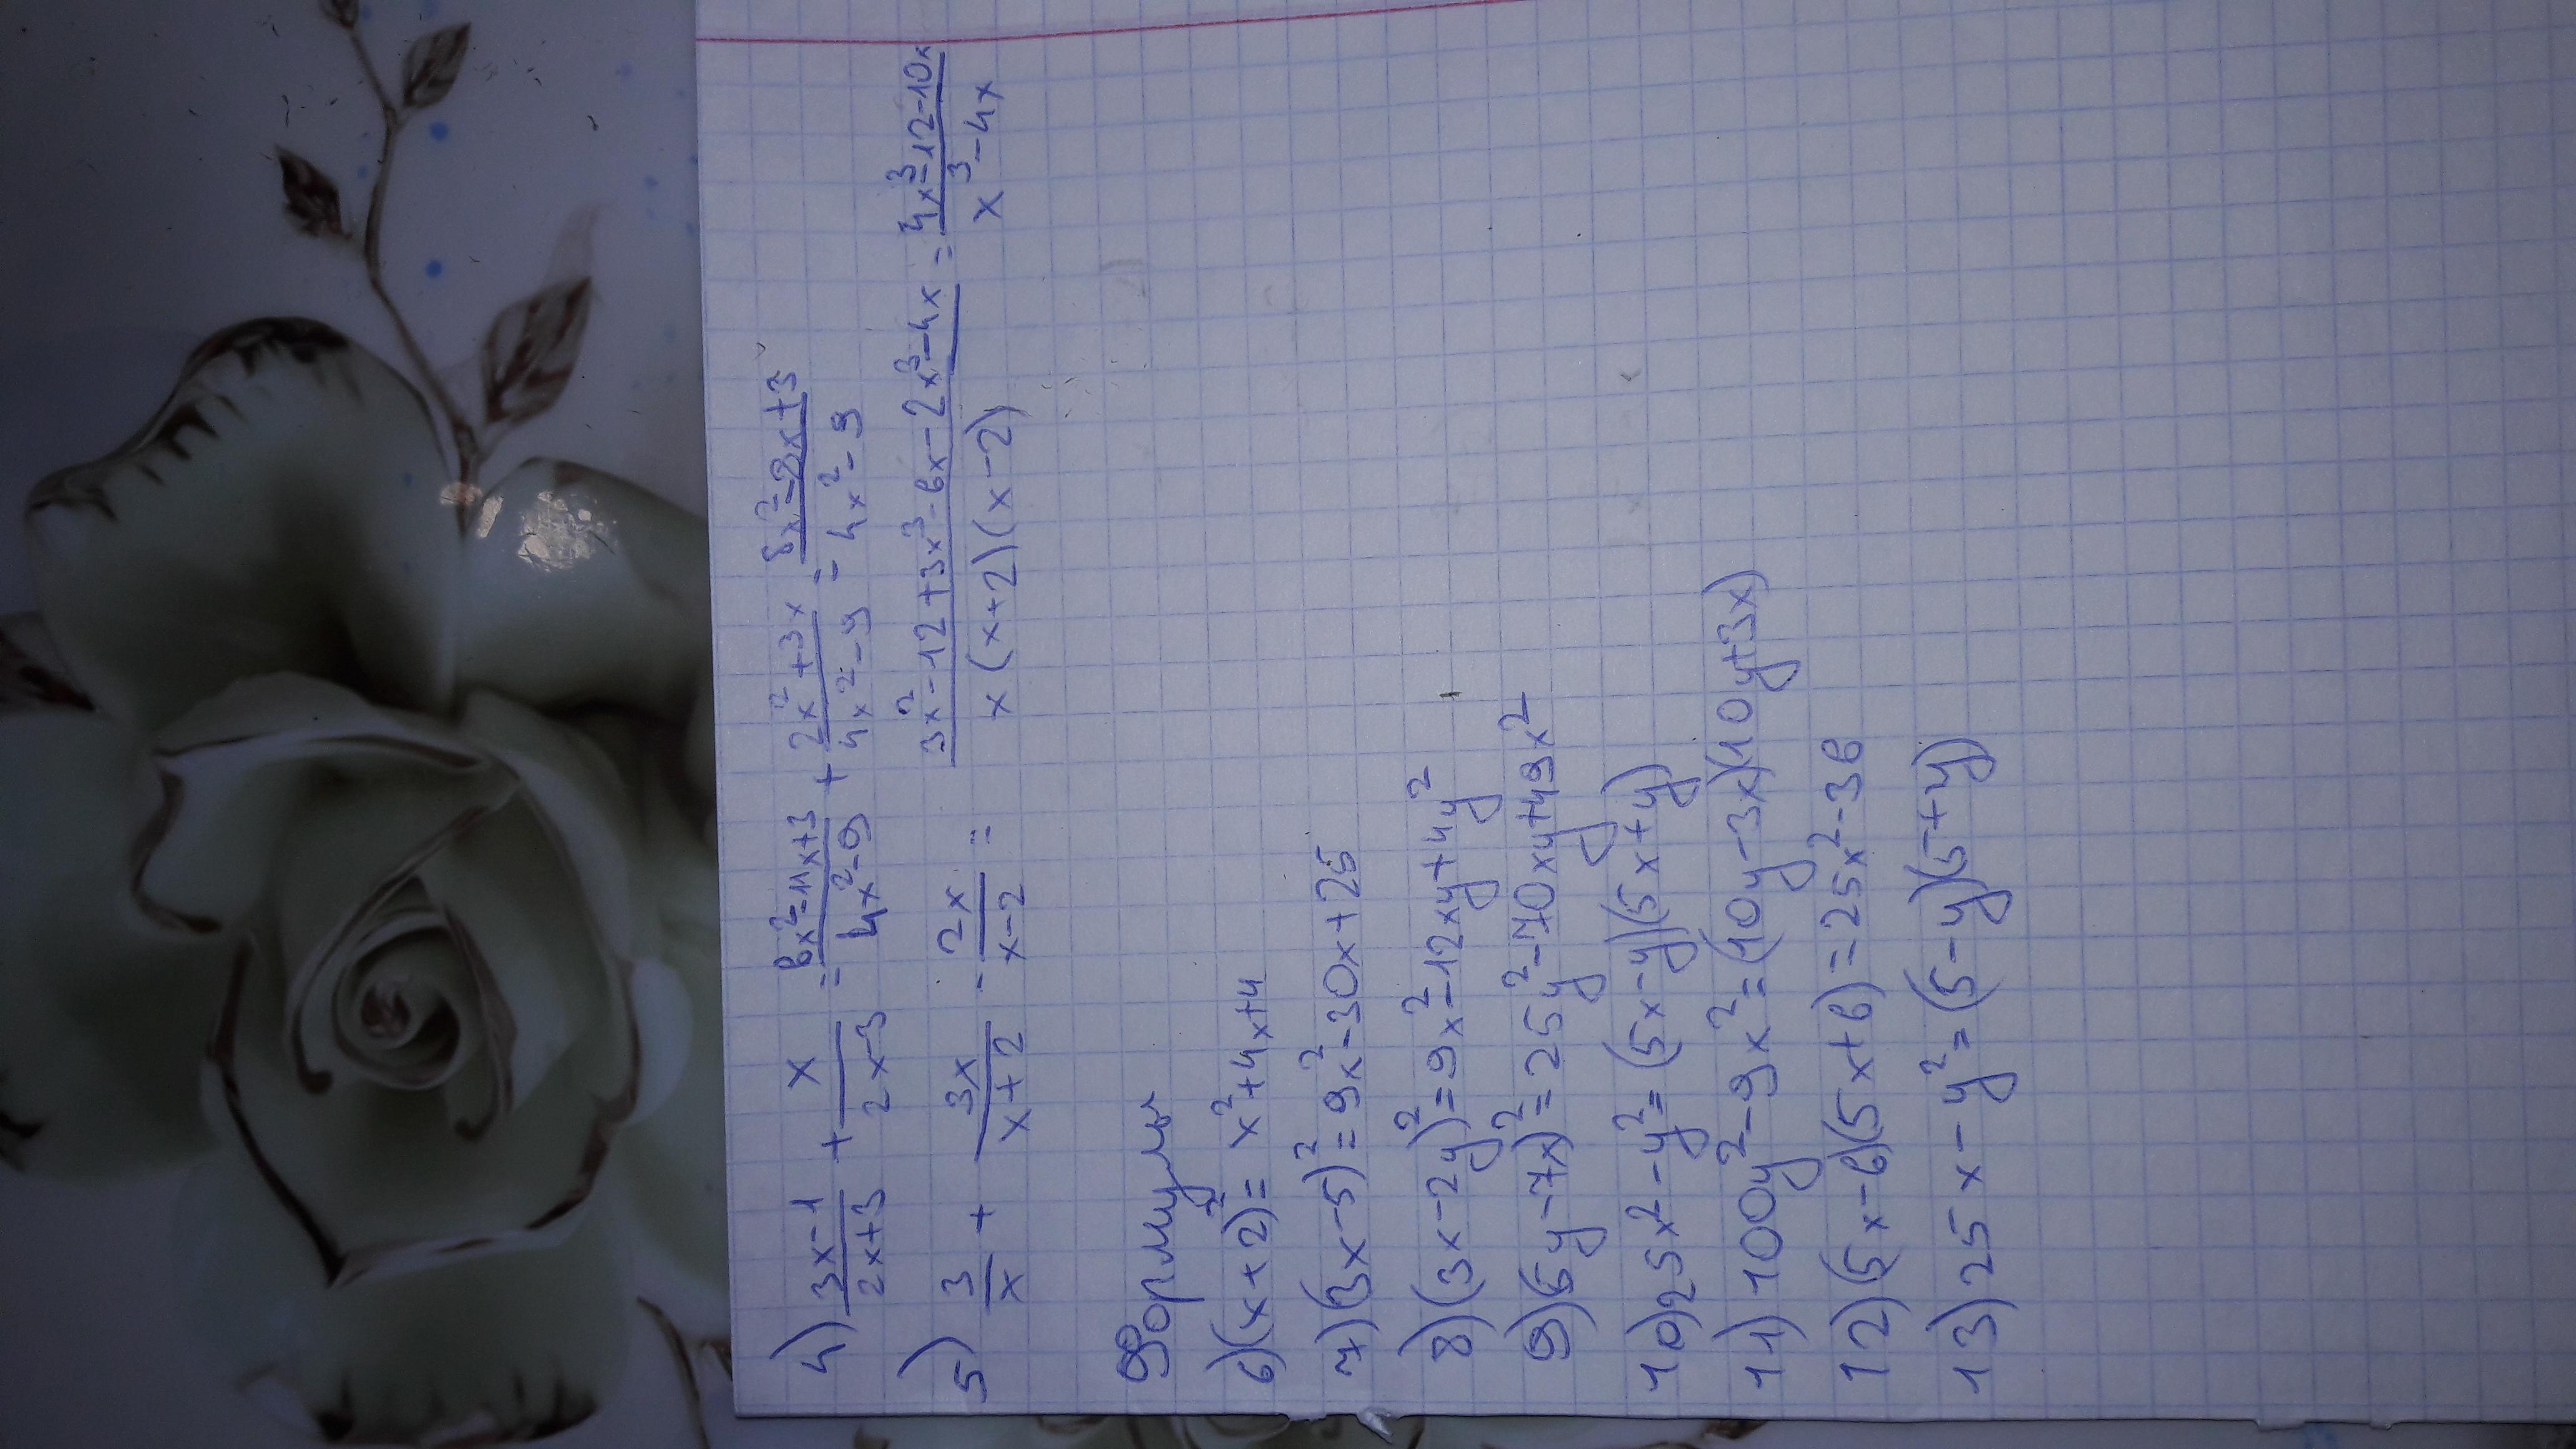 4) (3x-1)/(2x+3) + x/(2x-3) = (6x²-11x+3)/(4x²-9) + (2x²+3x)/(4x²-9) = (8x²-8x+3)/(4x²-9)
5) 3/x + 3x/(x+2) - 2x/(x-2) = (3x²-12+3x³-6x-2x³-4x)/(x(x+2)(x-2)) = (4x³-12-10x)/(x³-4x)
Формулы
6) (x+2)² = x²+4x+4
7) (3x-5)² = 9x²-30x+25
8) (3x-2y)² = 9x²-12xy+4y²
9) (5y-7x)² = 25y²-70xy+49x²
10) 25x²-y² = (5x-y)(5x+y)
11) 100y²-9x² = (10y-3x)(10y+3x)
12) (5x-6)(5x+6) = 25x²-36
13) 25x-y² = (5-y)(5+y)